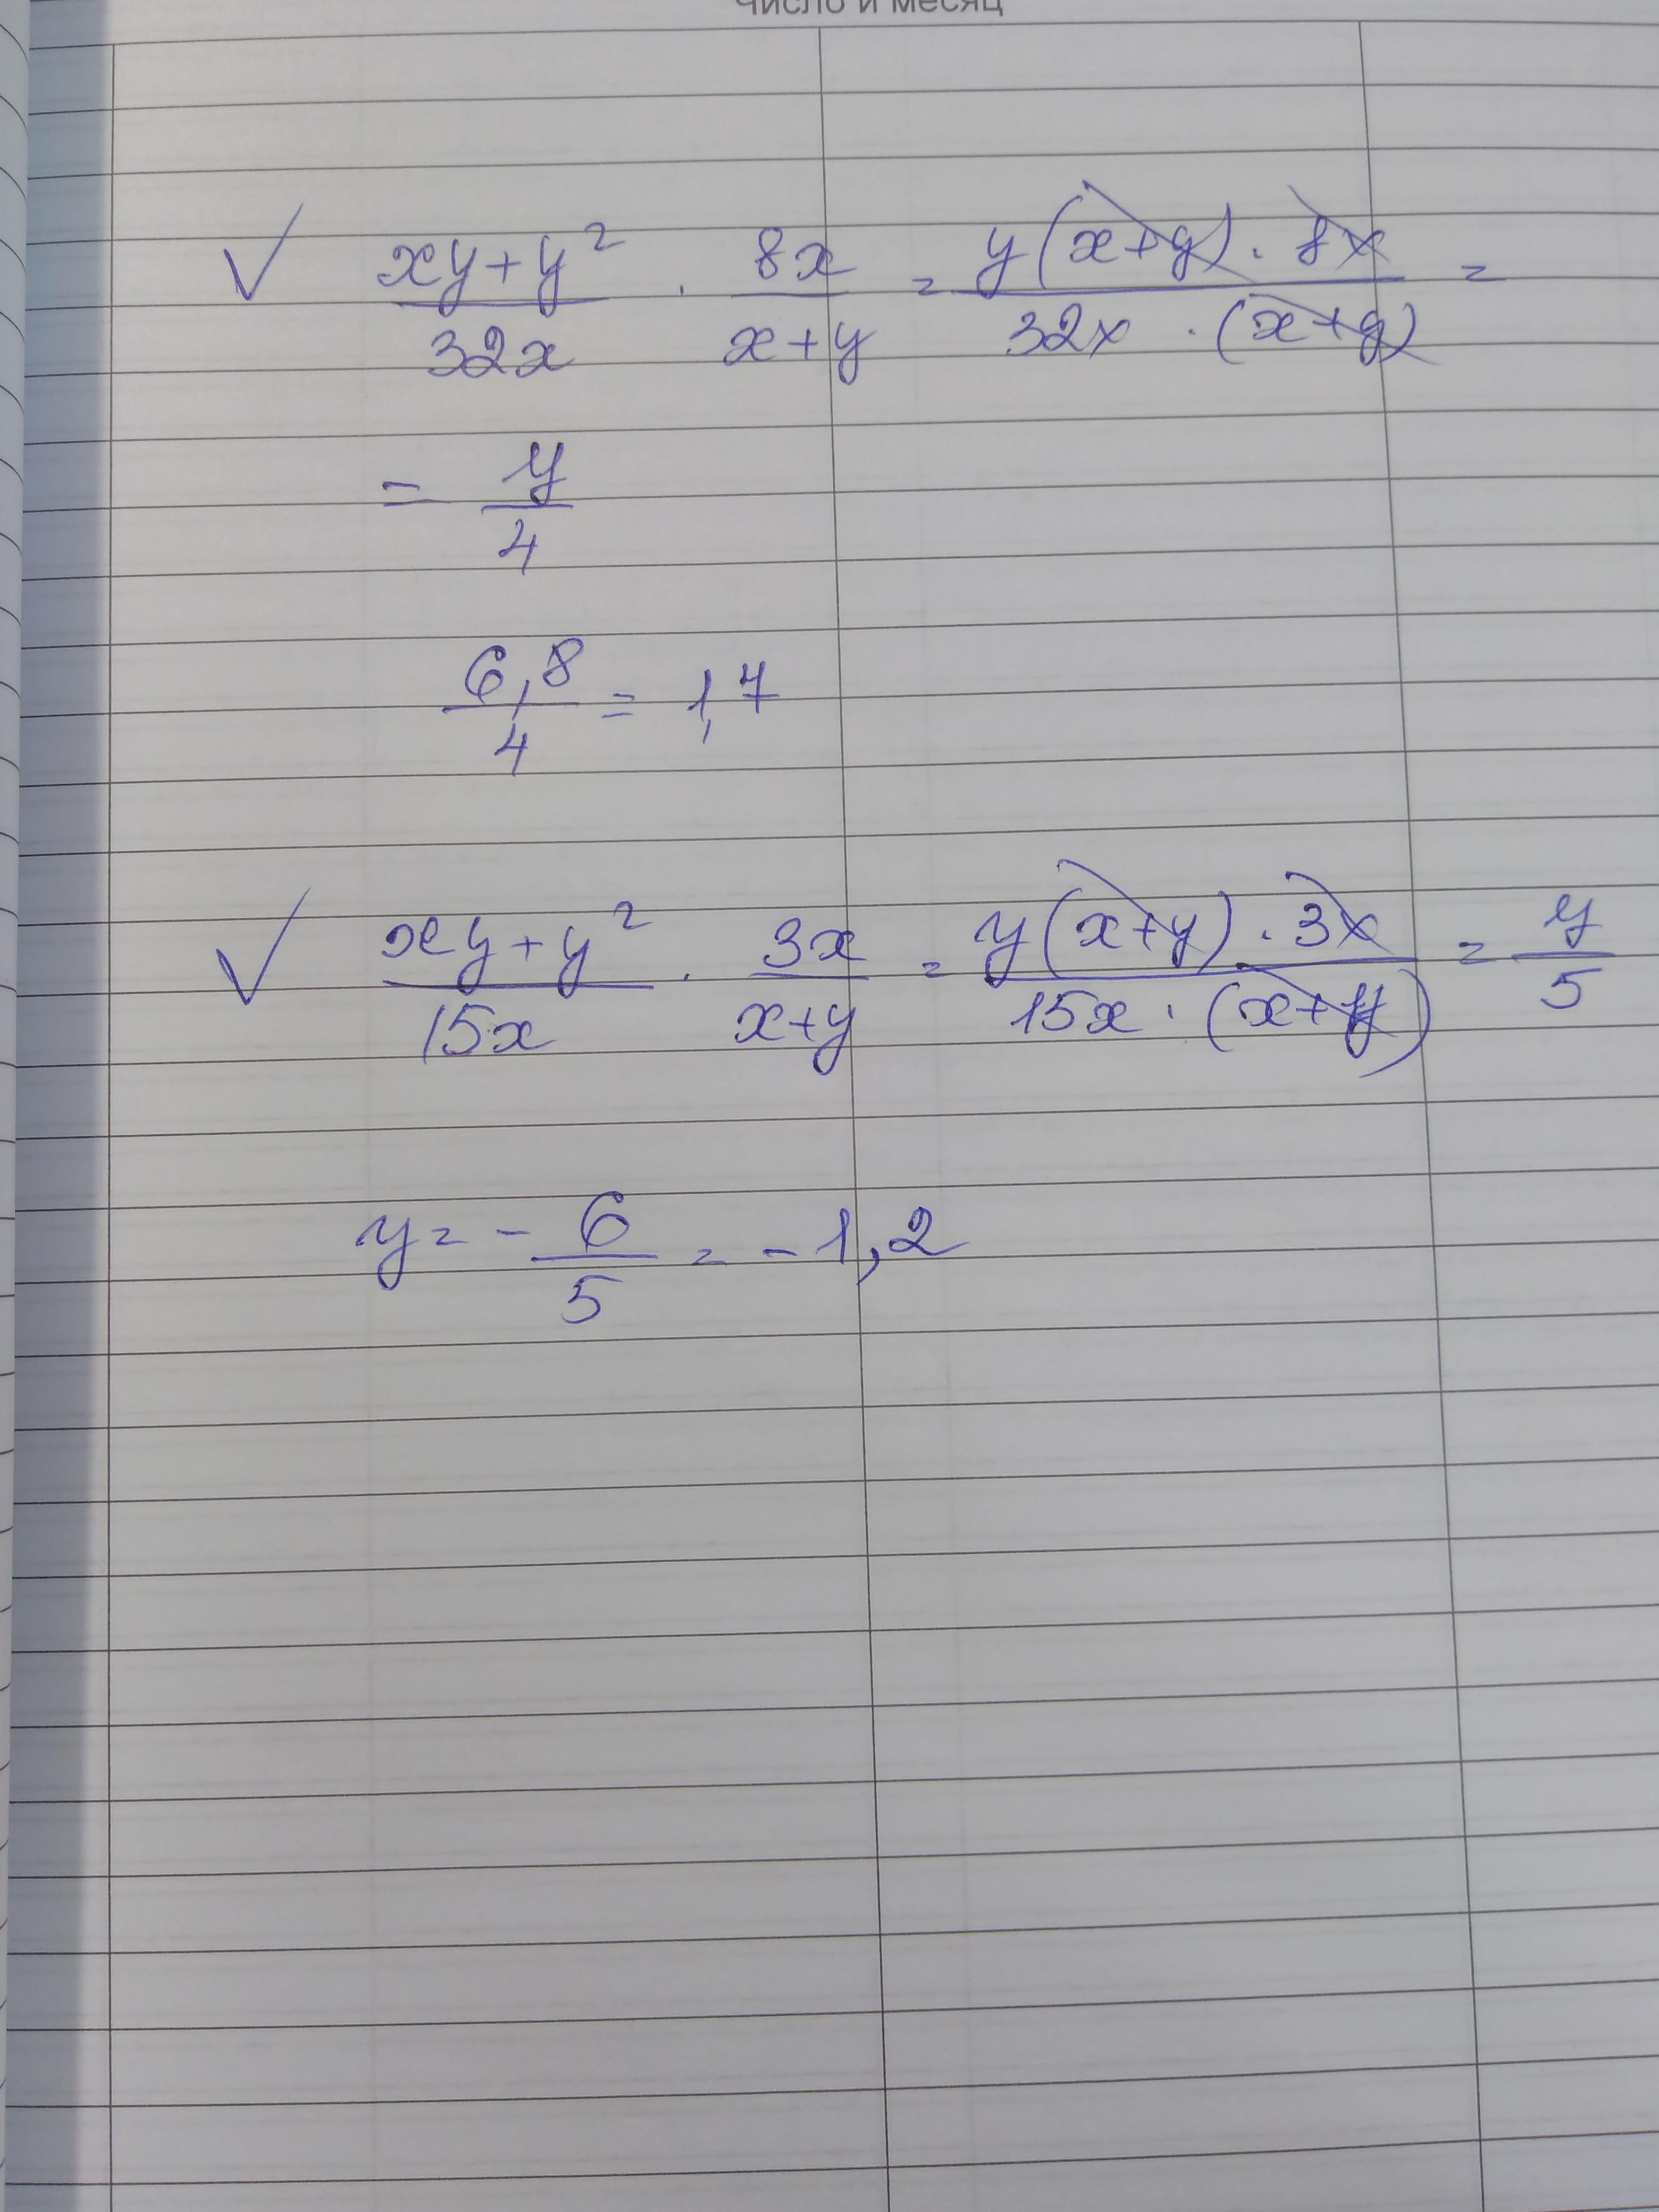 Число и месяц
√ (xy+y²)/(32x) · (8x)/(x+y) = (y(x+y) · 8x)/(32x · (x+y)) =
= y/4
6,8/4 = 1,7
√ (xy+y²)/(15x) · (3x)/(x+y) = (y(x+y) · 3x)/(15x · (x+y)) = y/5
y = - 6/5 = - 1,2